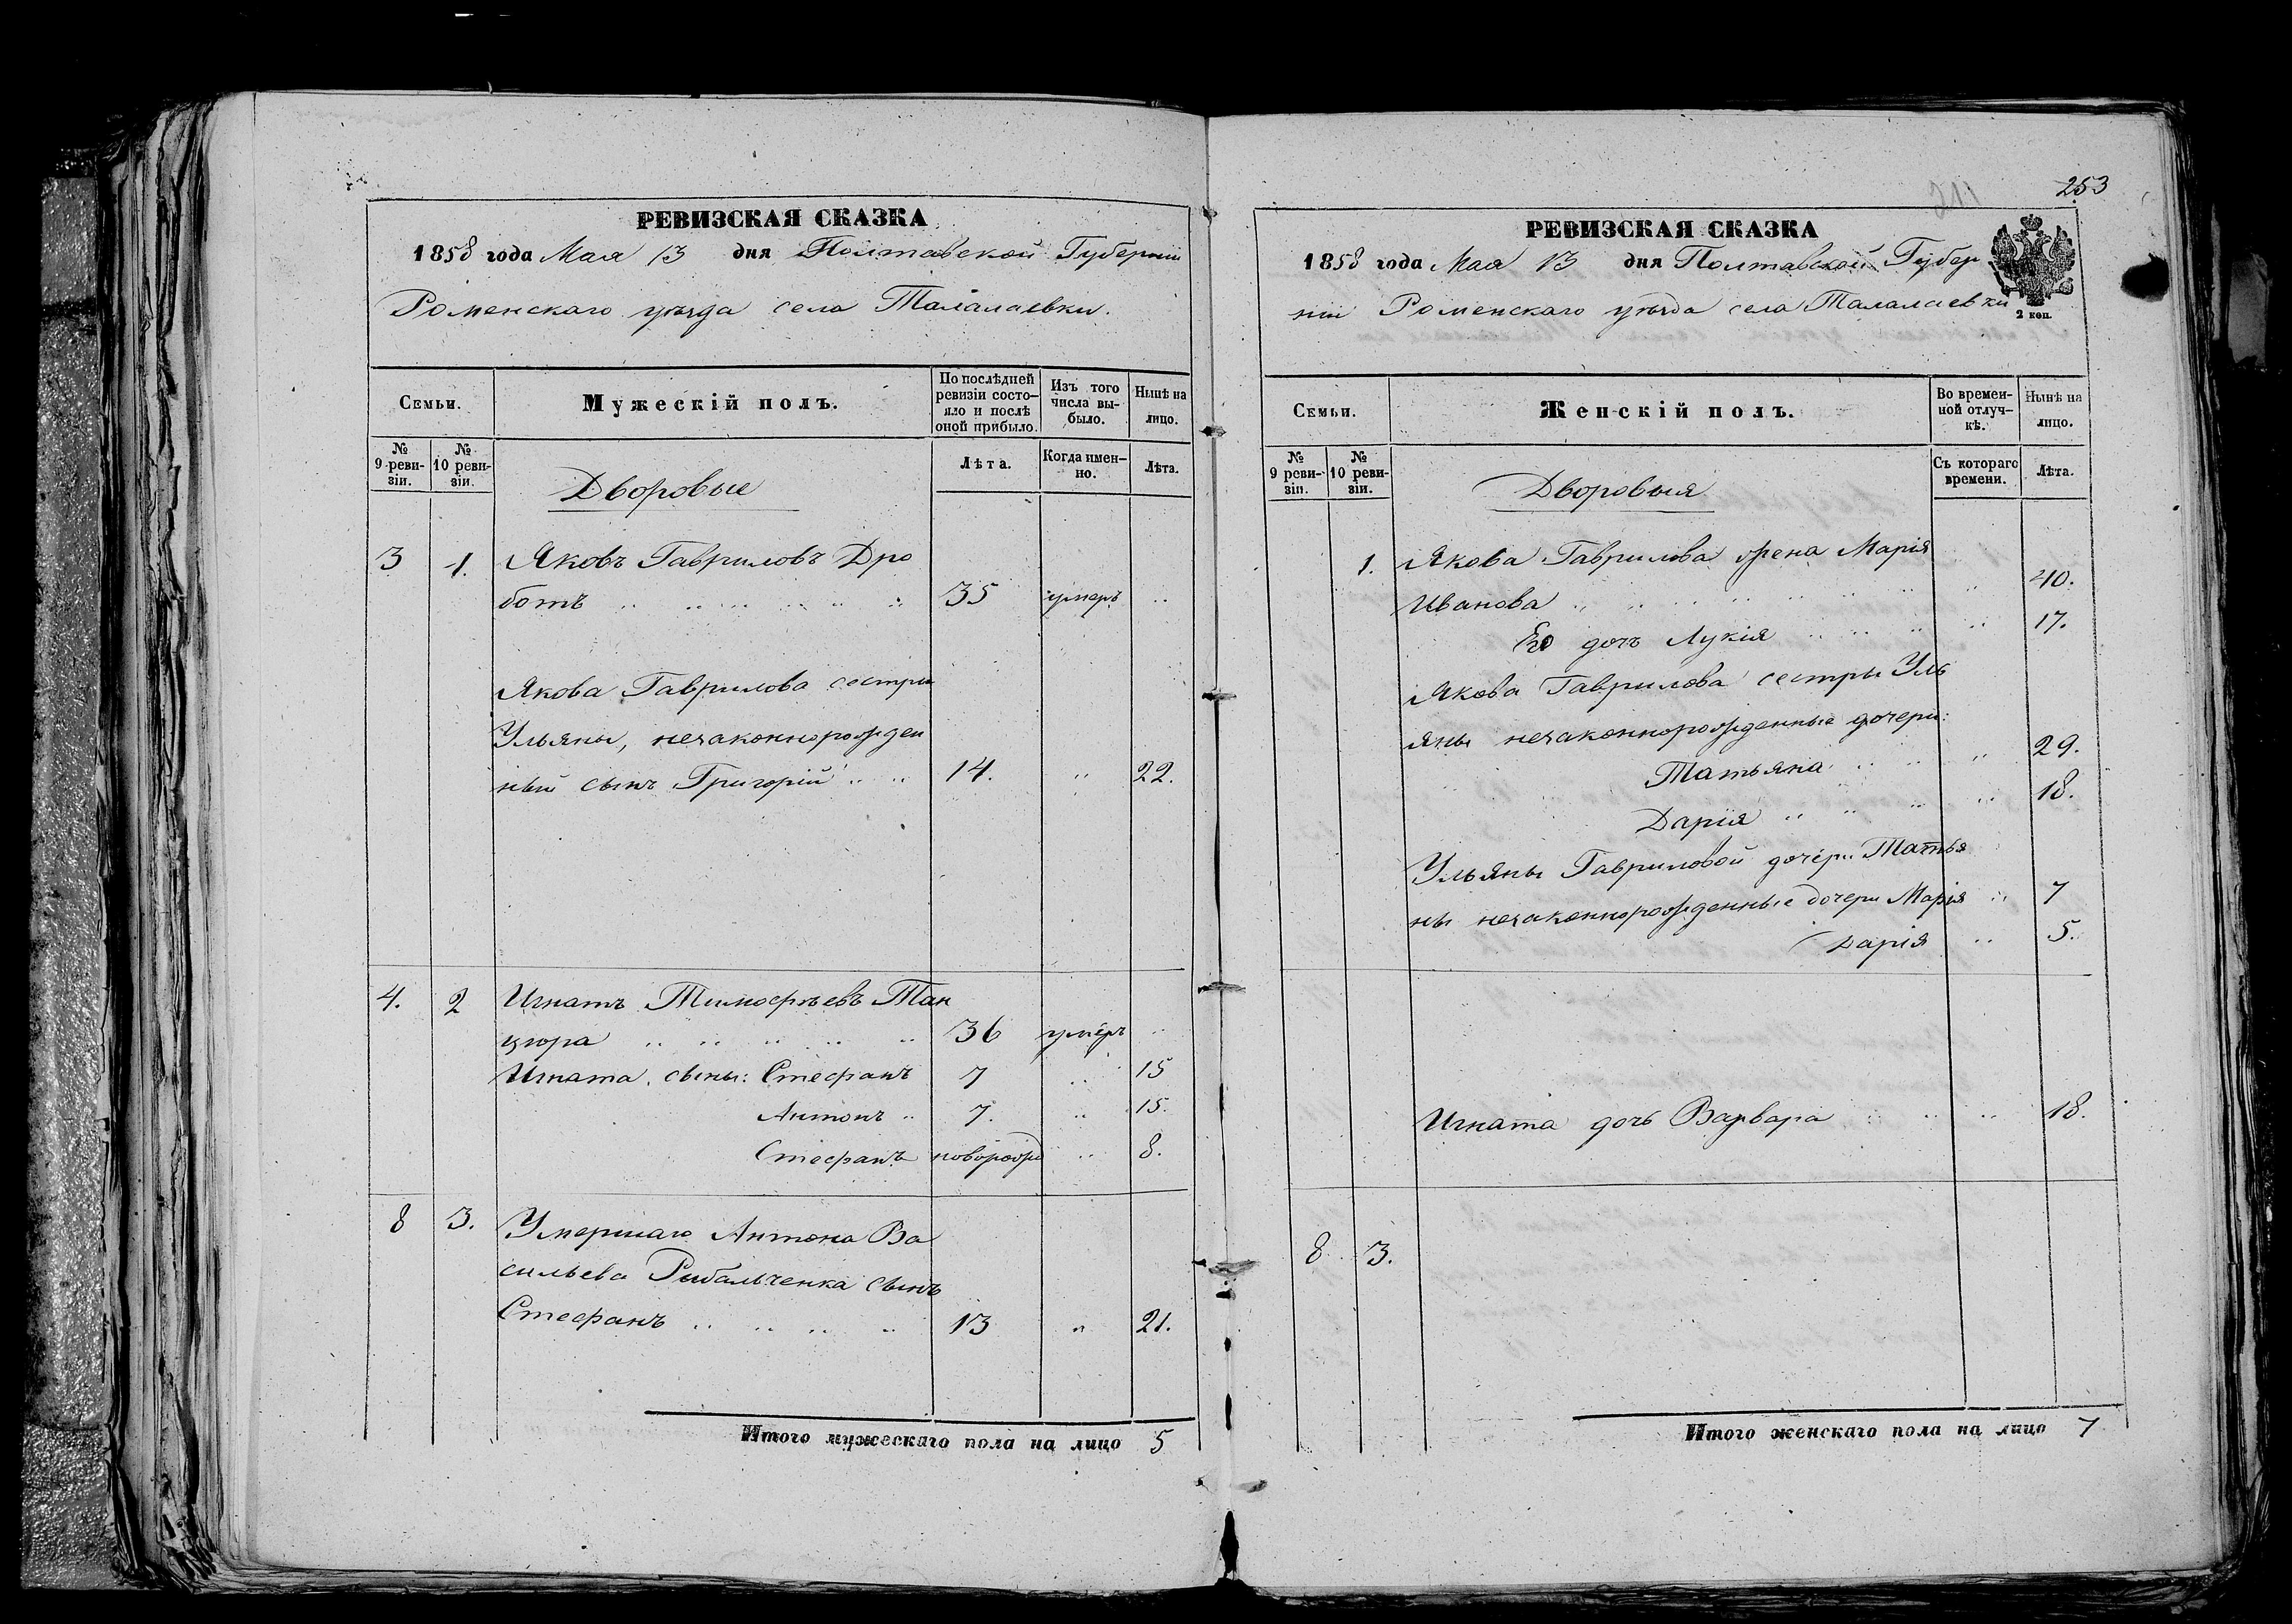 РЕВИЗСКАЯ СКАЗКА
1858 года Мая 13 дня Полтавской Губерніи
Роменскаго уѣзда села Талалаевки.
Семьи.
Мужескій полъ.
По послѣдней ревизіи состо-
яло и послѣ
оной прибыло.
Изъ того
числа вы-
было.
Нынѣ на
лицо.
№
9 реви-
зіи.
№
10 реви-
зіи.
Лѣта.
Когда имен-
но.
Лѣта.
Дворовые
3 1. Яковъ Гавриловъ Дро
ботъ 35 умеръ
Якова Гаврилова сестры
Ульяны, незаконнорожден
ный сынъ Григорій 14. 22.
4. 2 Игнатъ Тимофѣевъ Тан
цюра 36 умеръ
Игната сыны: Стефанъ 7 15
Антонъ 7. 15.
Стефанъ новорожд 8.
8 3. Умершаго Антона Ва
сильева Рибальченка сынъ
Стефанъ 13 21.
Итого мужескаго пола на лицо 5
253
РЕВИЗСКАЯ СКАЗКА
1858 года Мая 13 дня Полтавской Губер
ніи Роменскаго уѣзда села Талалаевки
2 коп.
Семьи.
Женскій полъ.
Во времен-
ной отлуч-
кѣ.
Нынѣ на
лицо.
№
9 реви-
зіи.
№
10 реви-
зіи.
Съ котораго
времени.
Лѣта.
Дворовыя
1. Якова Гаврилова жена Марія
Иванова 40.
Его дочь Лукія 17.
Якова Гаврилова сестры Уль
яны незаконнорожденные дочери:
Татьяна 29.
Дарія 18.
Ульяны Гавриловой дочери Татья
ны незаконнорожденные дочери Марія 7
Дарія 5.
Игната дочь Варвара 18.
8 3.
Итого женскаго пола на лицо 7